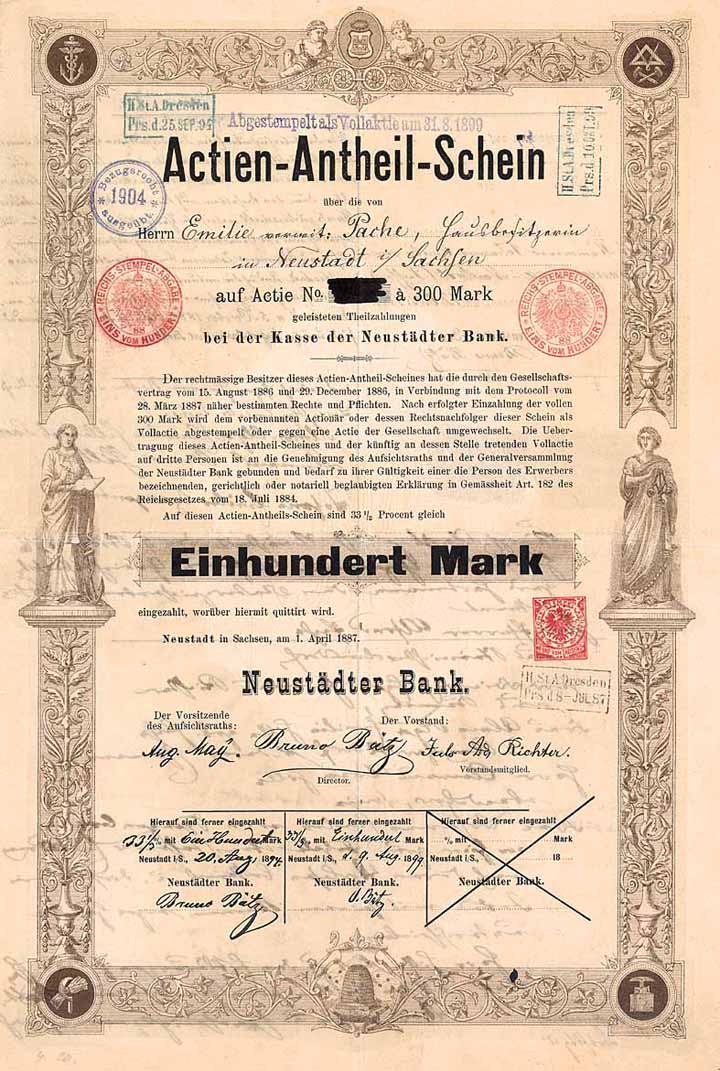 H.St.A.Dresden
Prs.d.25.SEP.94
Abgestempelt als Vollaktie am 31.8.1899
H.St.A.Dresden
Actien-Antheil-Schein
Bezugsrecht
1904
ausgeübt.
über die von
Herrn Emilie verwit: Pache, Hausbesitzerin
in Neustadt i/ Sachsen
REICHS-STEMPEL-ABGABE
88
EINS VOM HUNDERT
REICHS-STEMPEL-ABGABE
88
EINS VOM HUNDERT
auf Actie No. à 300 Mark
geleisteten Theilzahlungen
bei der Kasse der Neustädter Bank.
Der rechtmässige Besitzer dieses Actien-Antheil-Scheines hat die durch den Gesellschafts-
vertrag vom 15. August 1886 und 29. December 1886, in Verbindung mit dem Protocoll vom
28. März 1887 näher bestimmten Rechte und Pflichten. Nach erfolgter Einzahlung der vollen
300 Mark wird dem vorbenannten Actionär oder dessen Rechtsnachfolger dieser Schein als
Vollactie abgestempelt oder gegen eine Actie der Gesellschaft umgewechselt. Die Ueber-
tragung dieses Actien-Antheil-Scheines und der künftig an dessen Stelle tretenden Vollactie
auf dritte Personen ist an die Genehmigung des Aufsichtsraths und der Generalversammlung
der Neustädter Bank gebunden und bedarf zu ihrer Gültigkeit einer die Person des Erwerbers
bezeichnenden, gerichtlich oder notariell beglaubigten Erklärung in Gemässheit Art. 182 des
Reichsgesetzes vom 18. Juli 1884.
Auf diesen Actien-Antheils-Schein sind 33 1/3 Procent gleich
Einhundert Mark
eingezahlt, worüber hiermit quittirt wird.
Neustadt in Sachsen, am 1. April 1887.
H.St.A.Dresden
Prs.d 8-JUL 87
Neustädter Bank.
Der Vorsitzende
des Aufsichtsraths:
Der Vorstand:
Aug. May.
Bruno Bätz
Juls Ad Richter.
Director.
Vorstandsmitglied.
Hierauf sind ferner eingezahlt
33 1/3 % mit Ein Hundert Mark
Neustadt i/S., 20. Aug 1894.
Neustädter Bank.
Bruno Bätz
Hierauf sind ferner eingezahlt
33 1/3 % mit Einhundert Mark
Neustadt i/S., d. 9. Aug. 1899
Neustädter Bank.
B. Bätz.
Hierauf sind ferner eingezahlt
% mit Mark
Neustadt i/S., 18
Neustädter Bank.